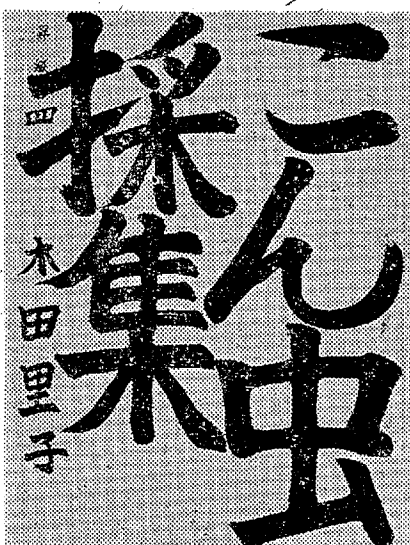 こん虫
採集
四
木田里子